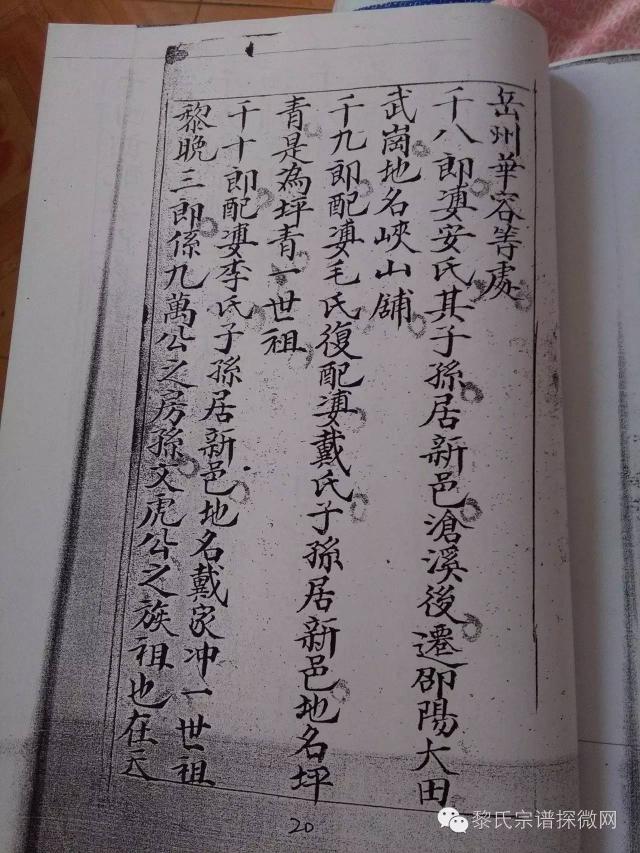 岳州華容等處
千八郎凄安氏其子孫居新邑滄溪後遷邵陽大田
武崗地名峽山舖
千九郎配凄毛氏復配凄戴氏子孫居新邑地名坪
青是為坪青一世祖
千十郎配凄李氏子孫居新邑地名戴家冲一世祖
黎晚三郎係九萬公之房孫文虎公之族祖也在元
20
黎氏宗谱探微网